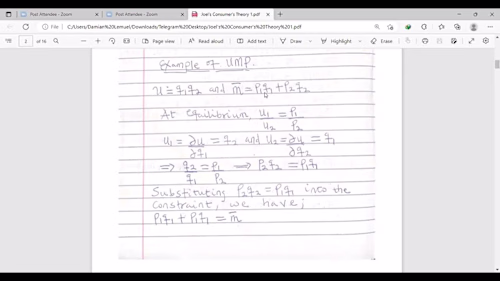 Post Attendee - Zoom
Post Attendee - Zoom
Joel's Consumer's Theory 1.pdf
File
C:/Users/Damian Lemuel/Downloads/Telegram%20Desktop/Joel's%20Consumer's%20Theory%201.pdf
2 of 16
Page view
Read aloud
Add text
Draw
Highlight
Erase
Example of UMP
U = q1q2 and m̄ = P1q1 + P2q2
At equilibrium, U1/U2 = P1/P2
U1 = ∂u/∂q1 = q2 and U2 = ∂u/∂q2 = q1
⇒ q2/q1 = P1/P2 ⇒ P2q2 = P1q1
Substituting P2q2 = P1q1 into the
constraint, we have;
P1q1 + P1q1 = m̄